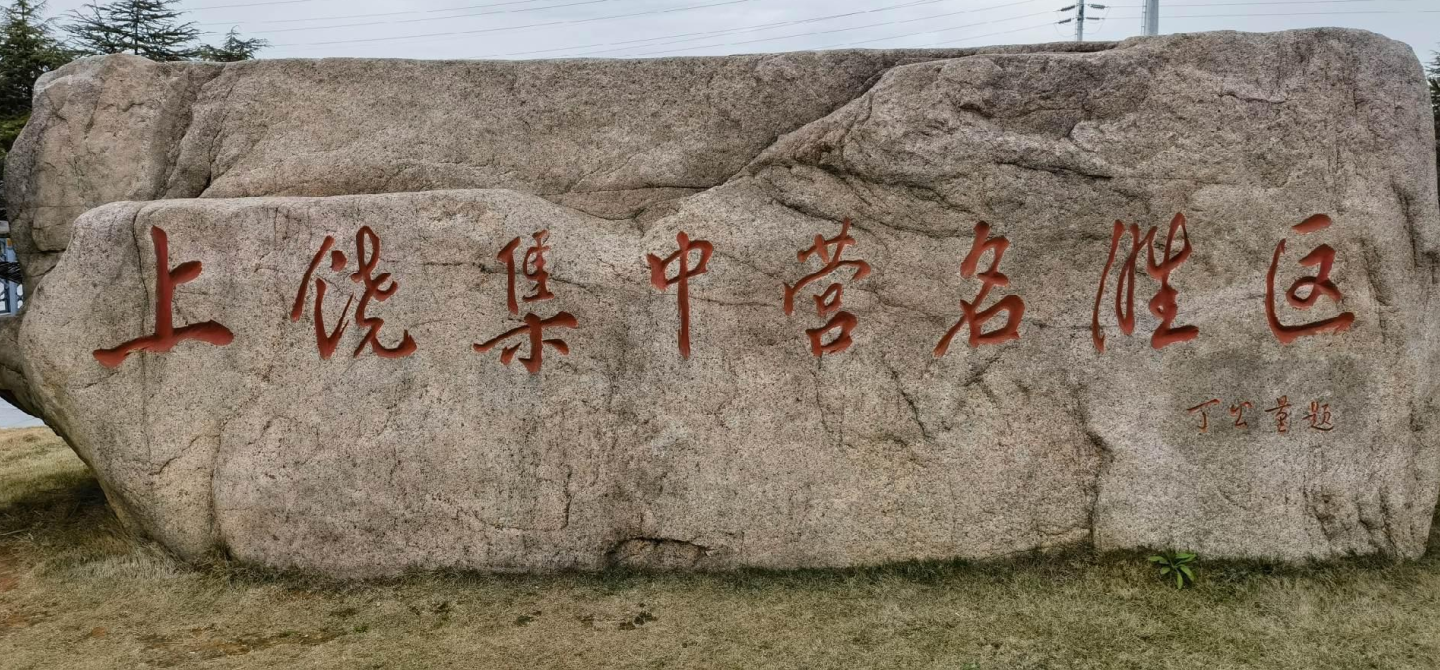 上饶集中营名胜区
丁公量题